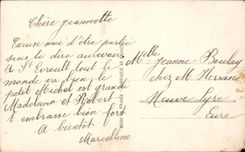 Chère jeannotte
Excuse moi d'être partie
sans te dire aurevoir
A St Evroult tout le
monde va bien, le
petit Michel est grand
Madeleine et Robert
t'embrasse bien fort
A bientôt
Marcelline
Mlle Jeanne Boulay
chez M
Neuve Lyre
Eure